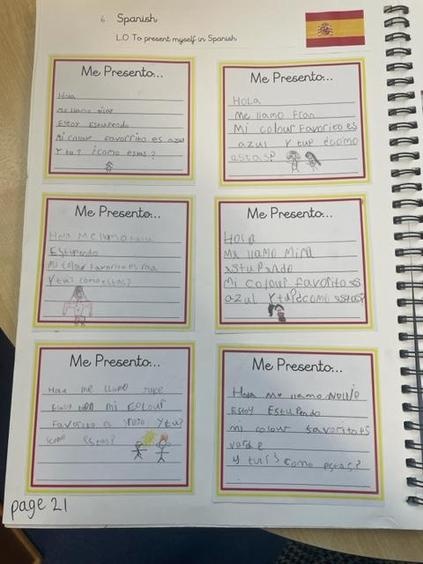 6. Spanish
L.O To present myself in Spanish
Me Presento...
Hola
Me llamo
Estoy Estupendo
Mi colour favorrito es azul
Y tu? ¿Como estas?
Me Presento...
HOLA
Me llamo Fran
Mi colour Favorito es
azul Y tu? ¿como
astas?
Me Presento...
Hola Me llamo
Estupendo
Mi colour favorito es
Y tu? como estas?
Me Presento...
Hola
Me llamo Mira
Mi colour favorito es
azul Y tu? ¿como
Me Presento...
Hola me llamo
Estoy mi colour
Favorito es Y tu?
estas?
Me Presento...
Hola Me llamo
Estoy Estupendo
mi colour favorito es
verde
y tu? ¿como estas?
page 21